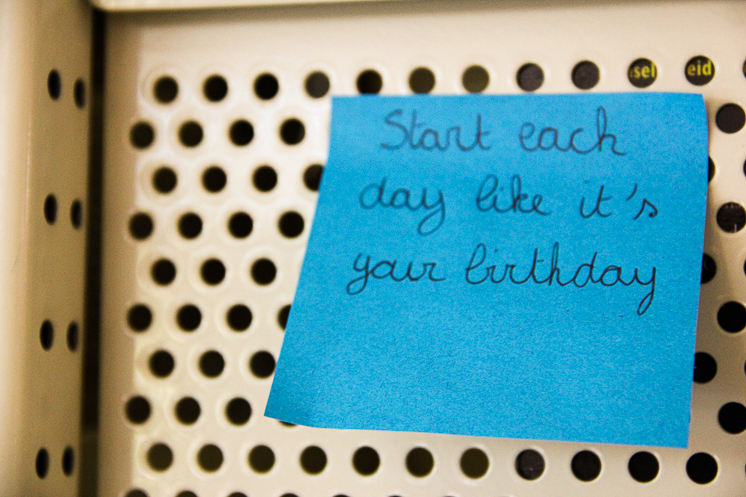 sel eid
Start each
day like it's
your birthday